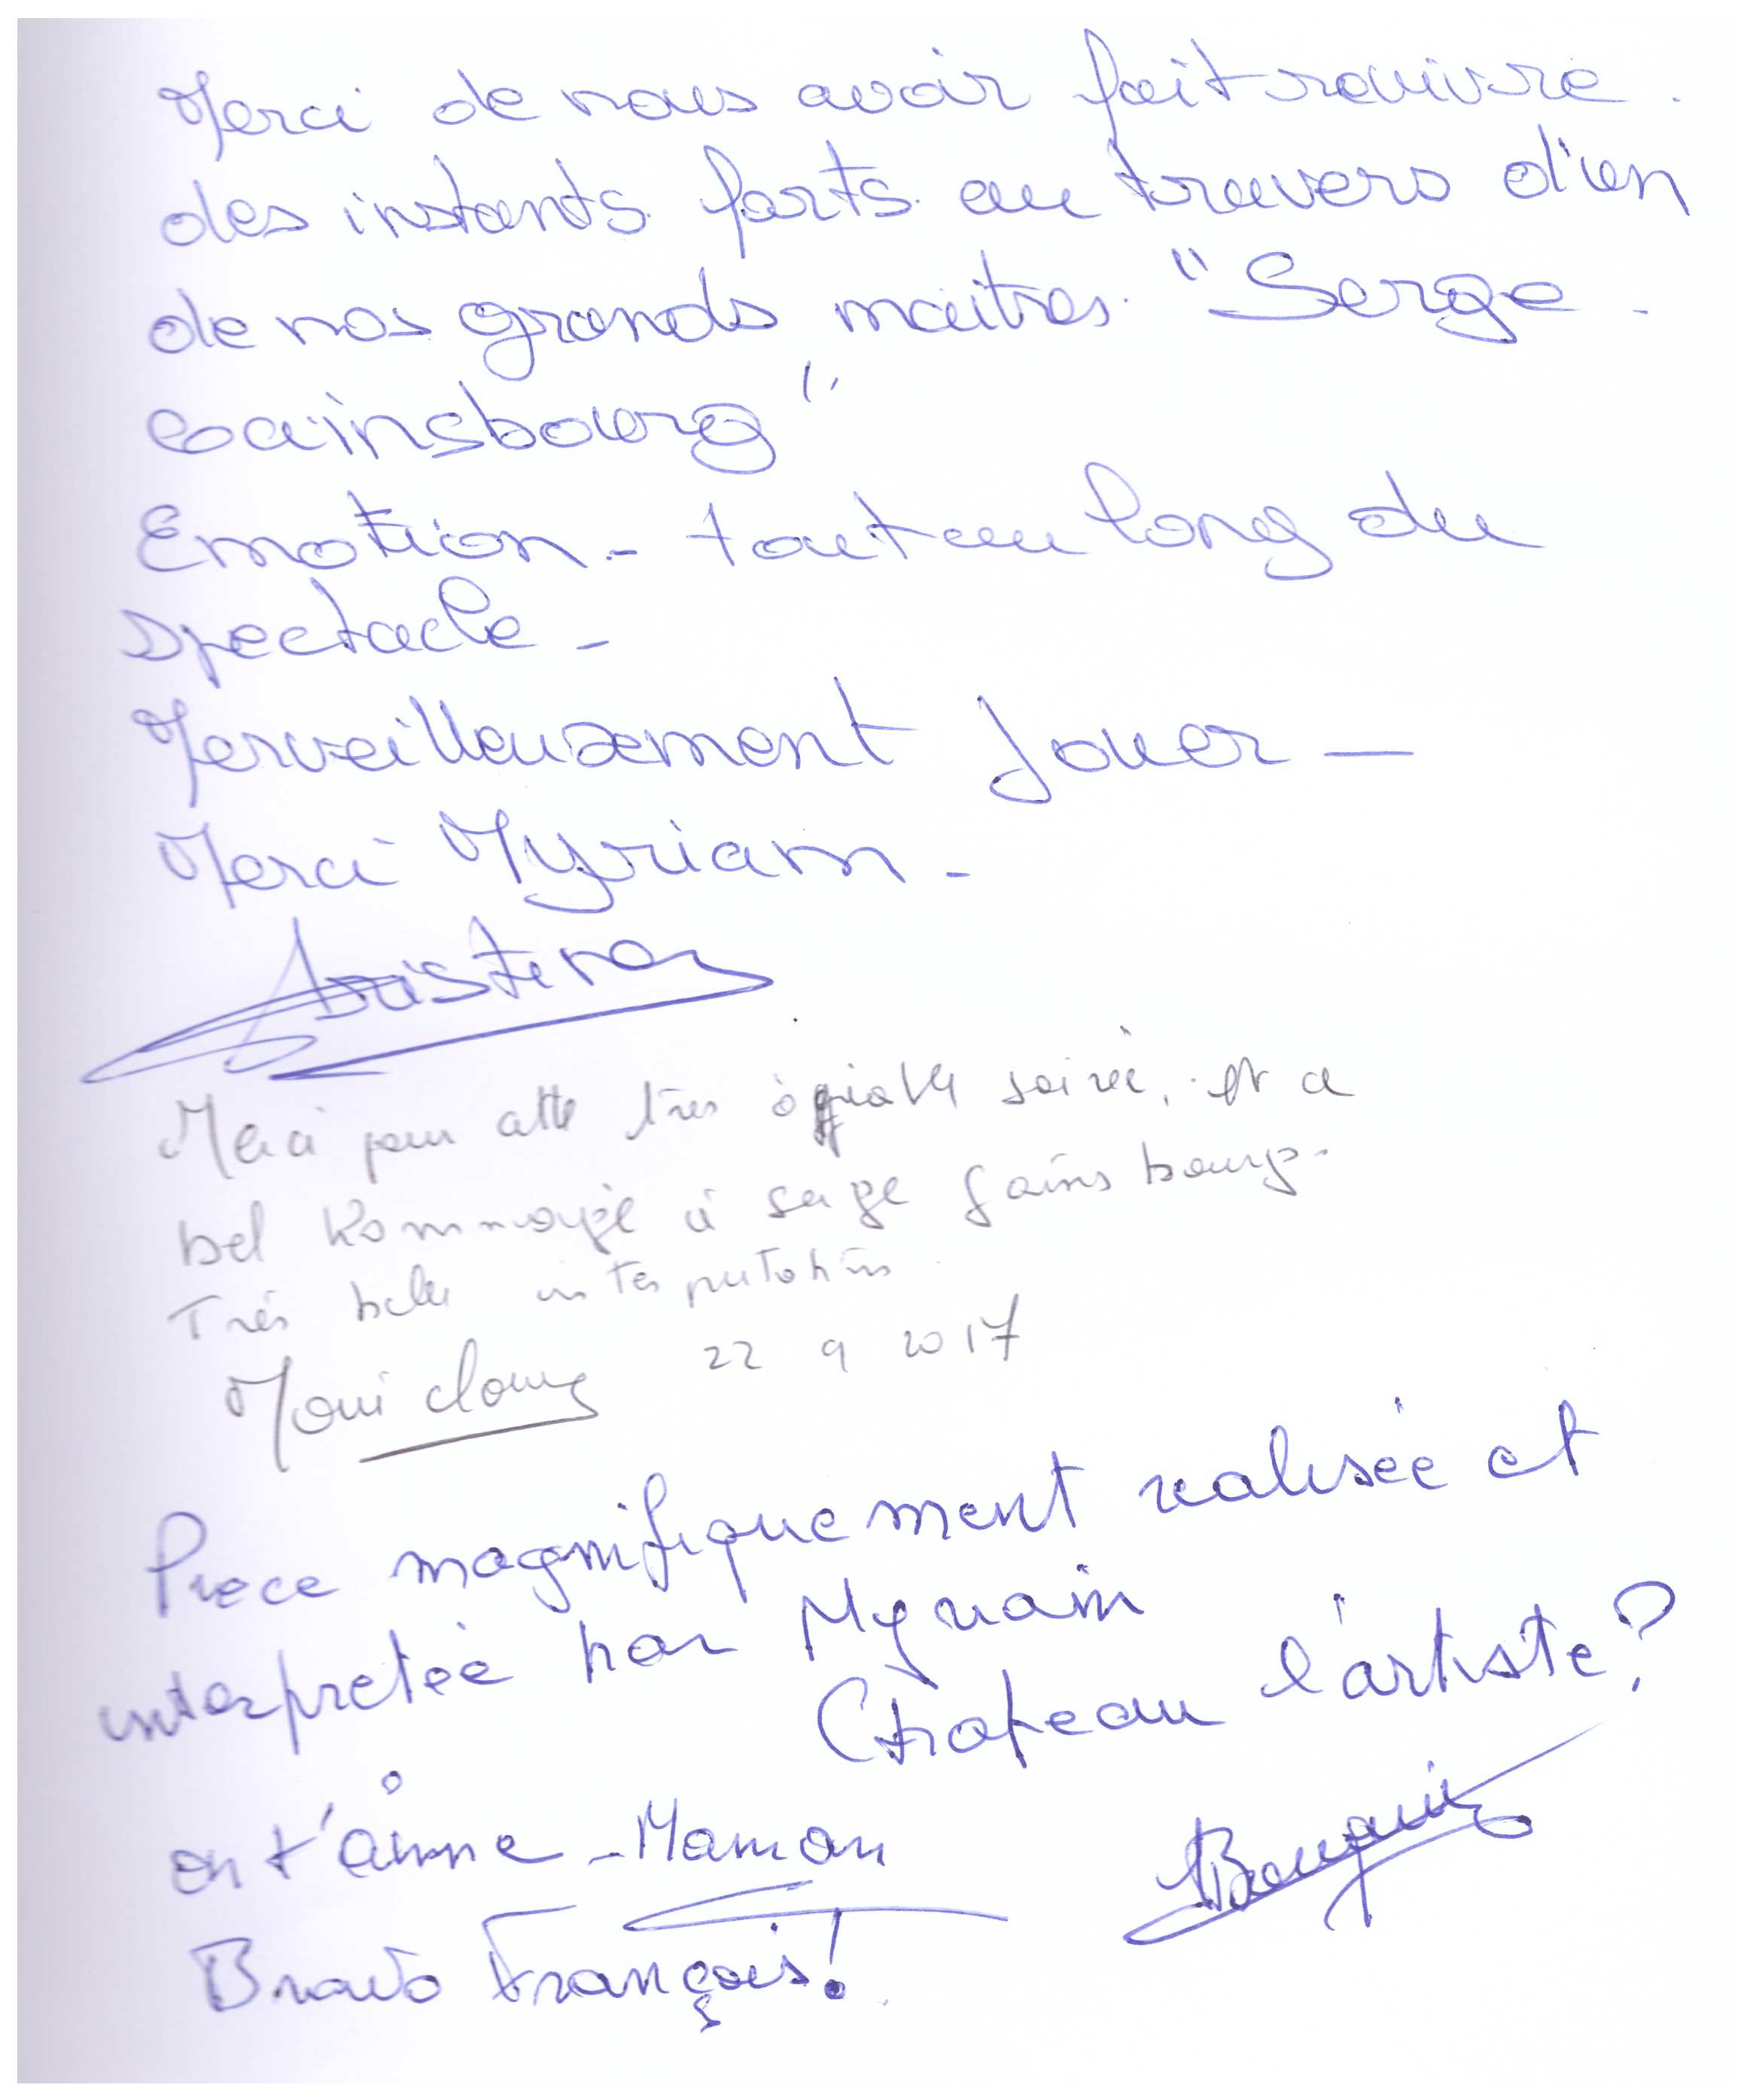 Merci de nous avoir fait revivre.
des instants. forts. au travers d'un
de nos grands maitres. "Serge -
Gainsbourg"
Emotion - tout au long du
spectacle -
Merveilleusement Jouer -
Merci Myriam -
Merci pour cette très agréable soirée, et ce
bel hommage à Serge Gainsbourg.
Très belle interprétation
22 9 2017
Pièce magnifiquement realisée et
interpretée par Myriam
Chapeau l'artiste!
on t'aime - Maman
Bravo François!